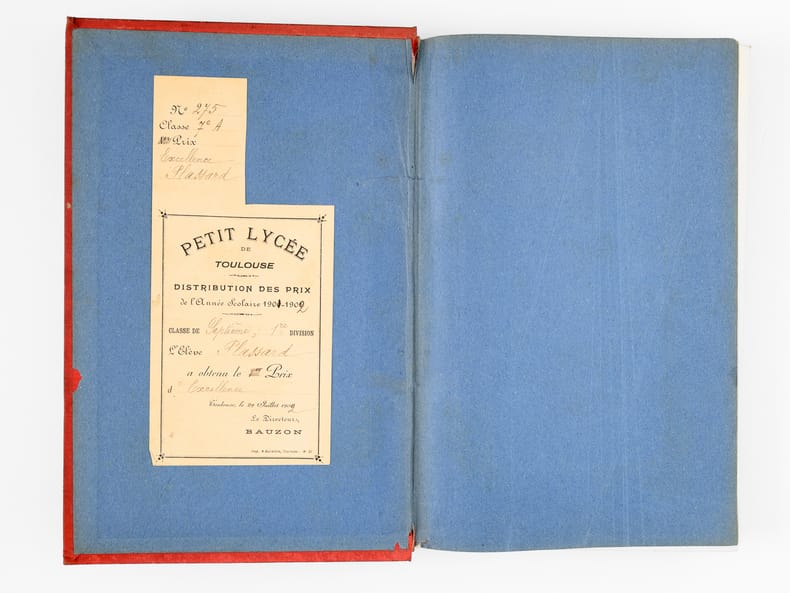 Nº 275
Classe 7e A
Prix
Excellence
Plassard
PETIT LYCÉE
DE
TOULOUSE
DISTRIBUTION DES PRIX
de l'Année Scolaire 1901-1902
CLASSE DE Septième, 1re DIVISION
L'Elève Plassard
a obtenu le Prix
d' Excellence
Toulouse, le 29 Juillet 1902
Le Directeur,
BAUZON